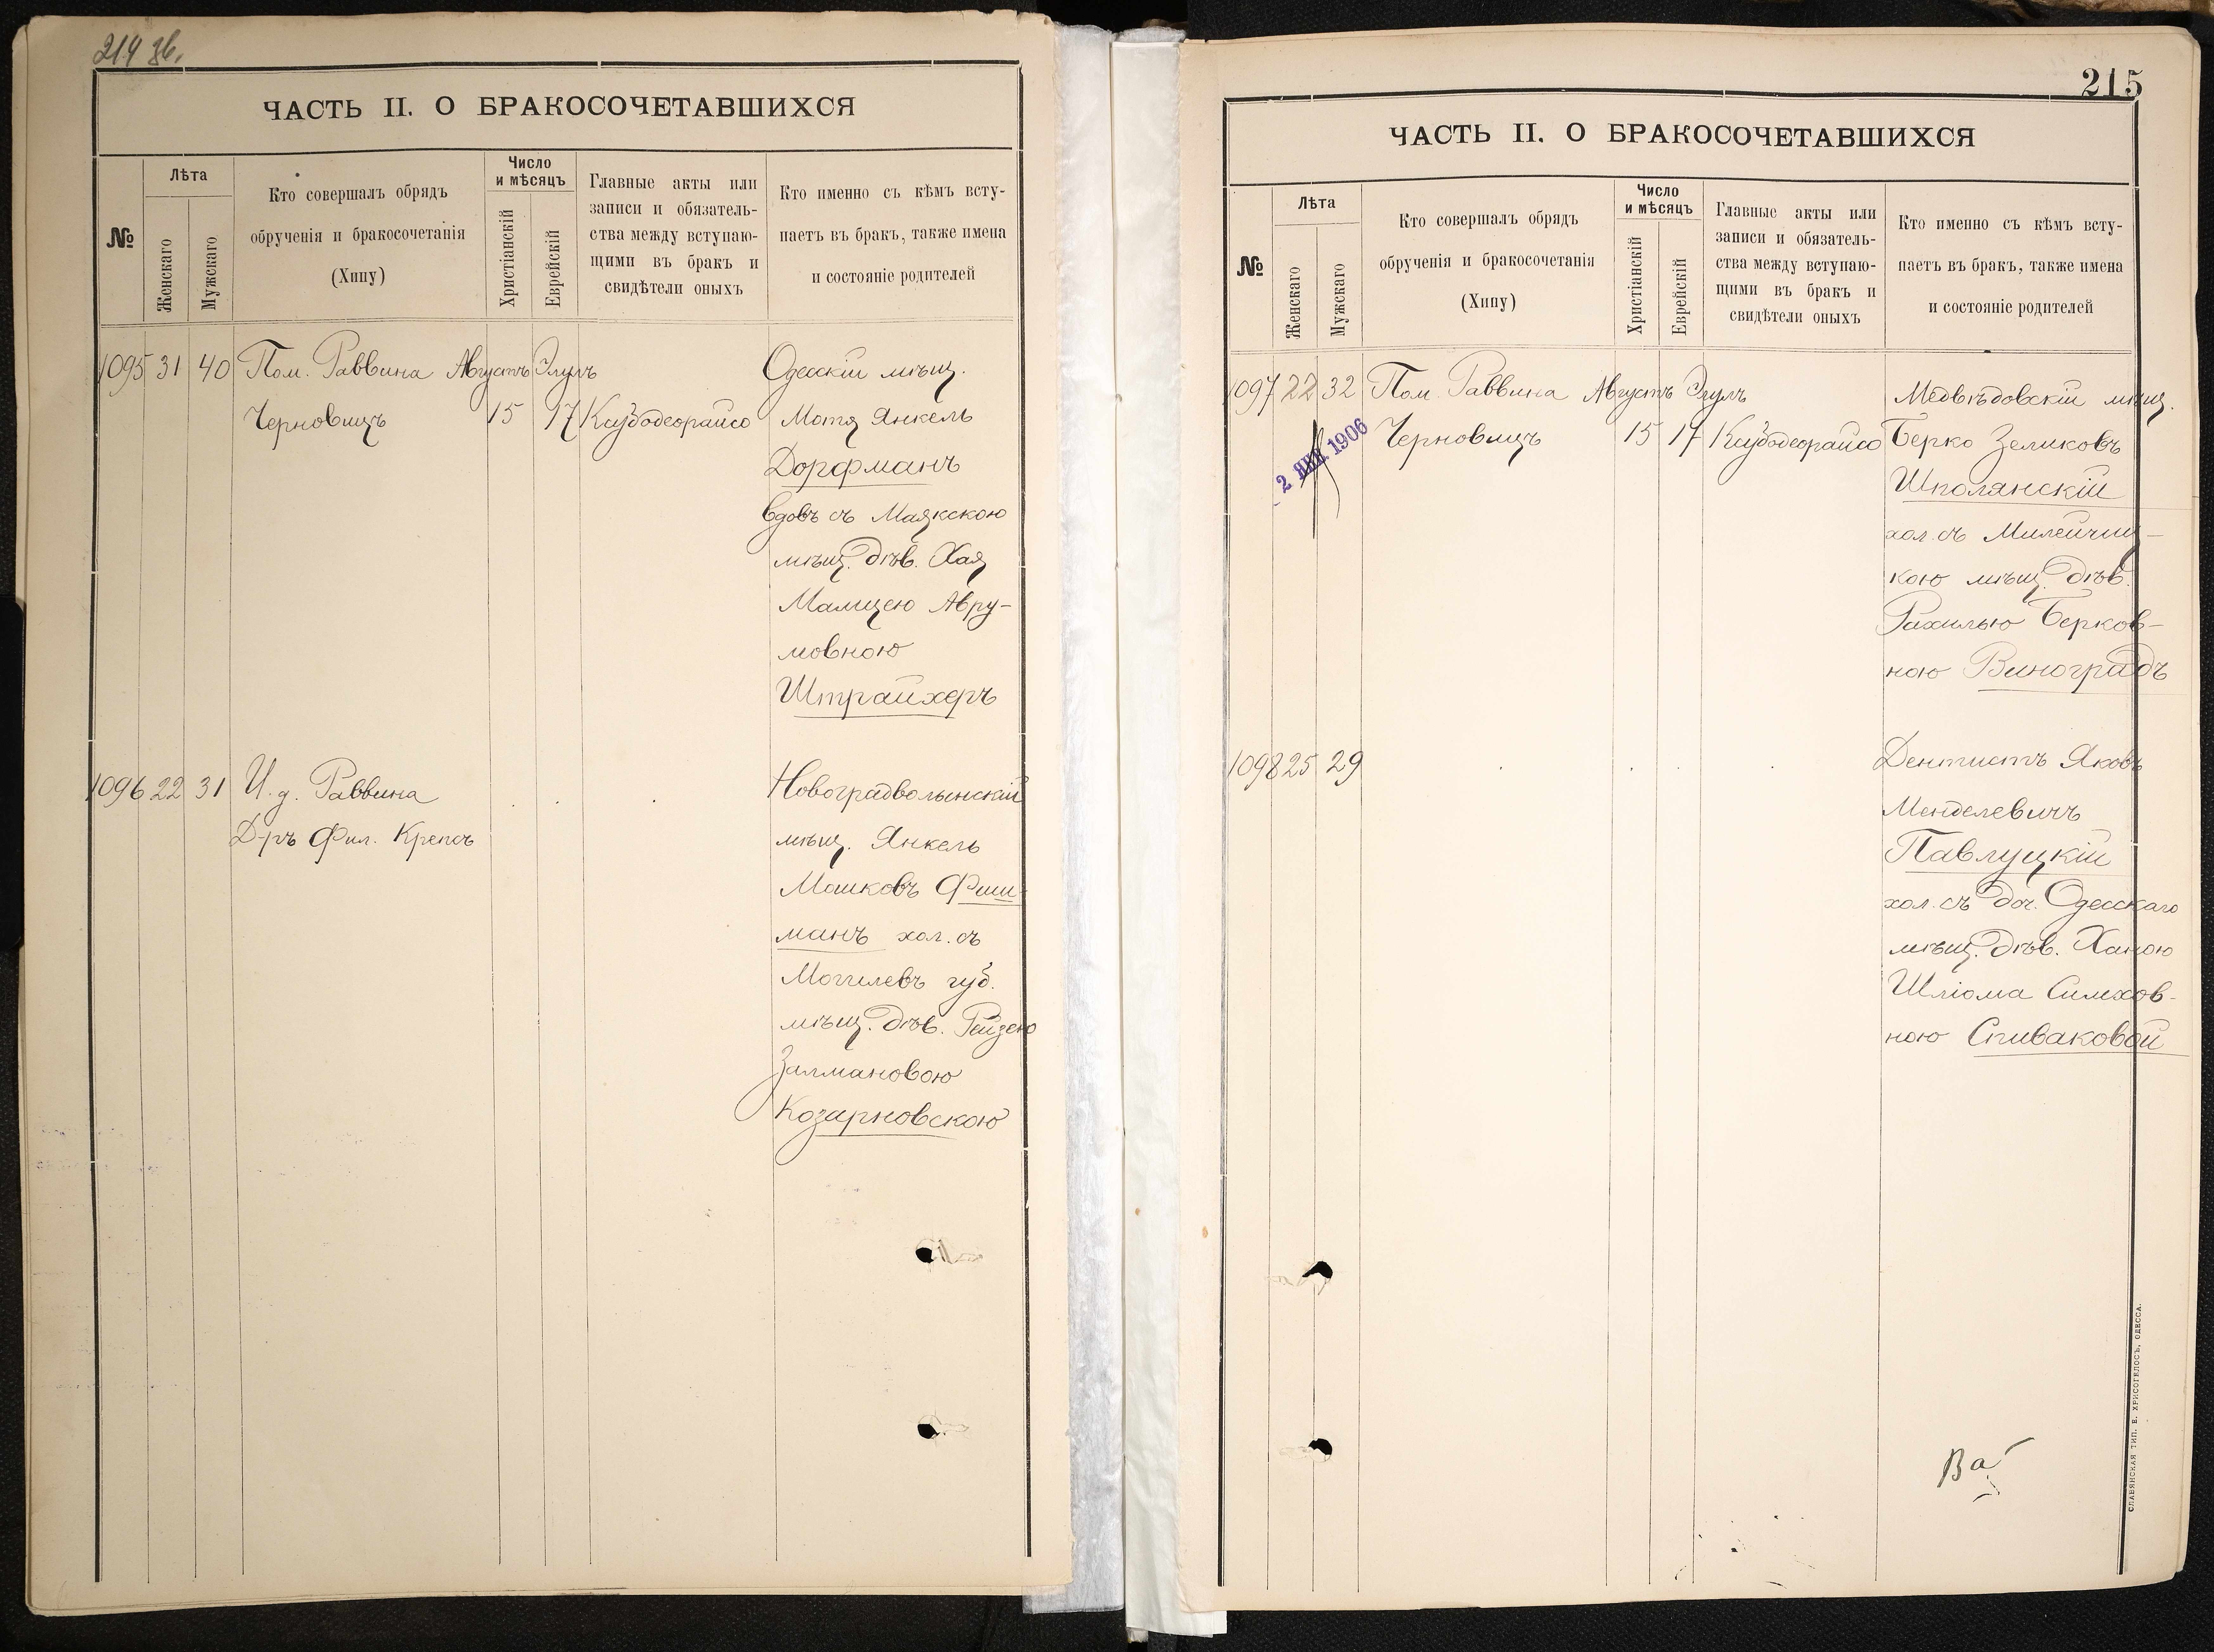 214 зв.
ЧАСТЬ II. О БРАКОСОЧЕТАВШИХСЯ
№
Лѣта
Женскаго
Мужскаго
Кто совершалъ обрядъ
обрученія и бракосочетанія
(Хипу)
Число
и мѣсяцъ
Христіанскій
Еврейскій
Главные акты или
записи и обязатель-
ства между вступаю-
щими въ бракъ и
свидѣтели оныхъ
Кто именно съ кѣмъ всту-
паетъ въ бракъ, также имена
и состояніе родителей
1095 31 40 Пом. Раввина Августъ Элулъ Одесскій мѣщ.
Черновицъ 15 17 Мотя Янкель
Дорфманъ
вдовъ съ Маякскою
мѣщ. дѣв. Хая
Малцею Авру-
мовною
Штрайхеръ
1096 22 31 И. д. Раввина Новоградволынскій
Д-ръ Фил. Крепсъ мѣщ. Янкель
Мошковъ Фиш-
манъ хол. съ
Могилевъ губ.
мѣщ. дѣв. Рейзею
Залмановою
Козарновскою
215
ЧАСТЬ II. О БРАКОСОЧЕТАВШИХСЯ
№
Лѣта
Женскаго
Мужскаго
Кто совершалъ обрядъ
обрученія и бракосочетанія
(Хипу)
Число
и мѣсяцъ
Христіанскій
Еврейскій
Главные акты или
записи и обязатель-
ства между вступаю-
щими въ бракъ и
свидѣтели оныхъ
Кто именно съ кѣмъ всту-
паетъ въ бракъ, также имена
и состояніе родителей
1097 22 32 Пом. Раввина Августъ Элулъ Медвѣдовскій мѣщ.
2 ЯНВ. 1906
Черновицъ 15 17 Берко Зеликовъ
Шполянскій
хол. съ Милейчиц-
кою мѣщ. дѣв.
Рахилью Берков-
ною Виноградъ
1098 25 29 Дентистъ Яковъ
Менделевичъ
Павлуцкій
хол. съ доч. Одесскаго
мѣщ. дѣв. Ханою
Шліома Симхов-
ною Спиваковой
СЛАВЯНСКАЯ ТИП. Е. ХРИСОГЕЛОСЪ, ОДЕССА.